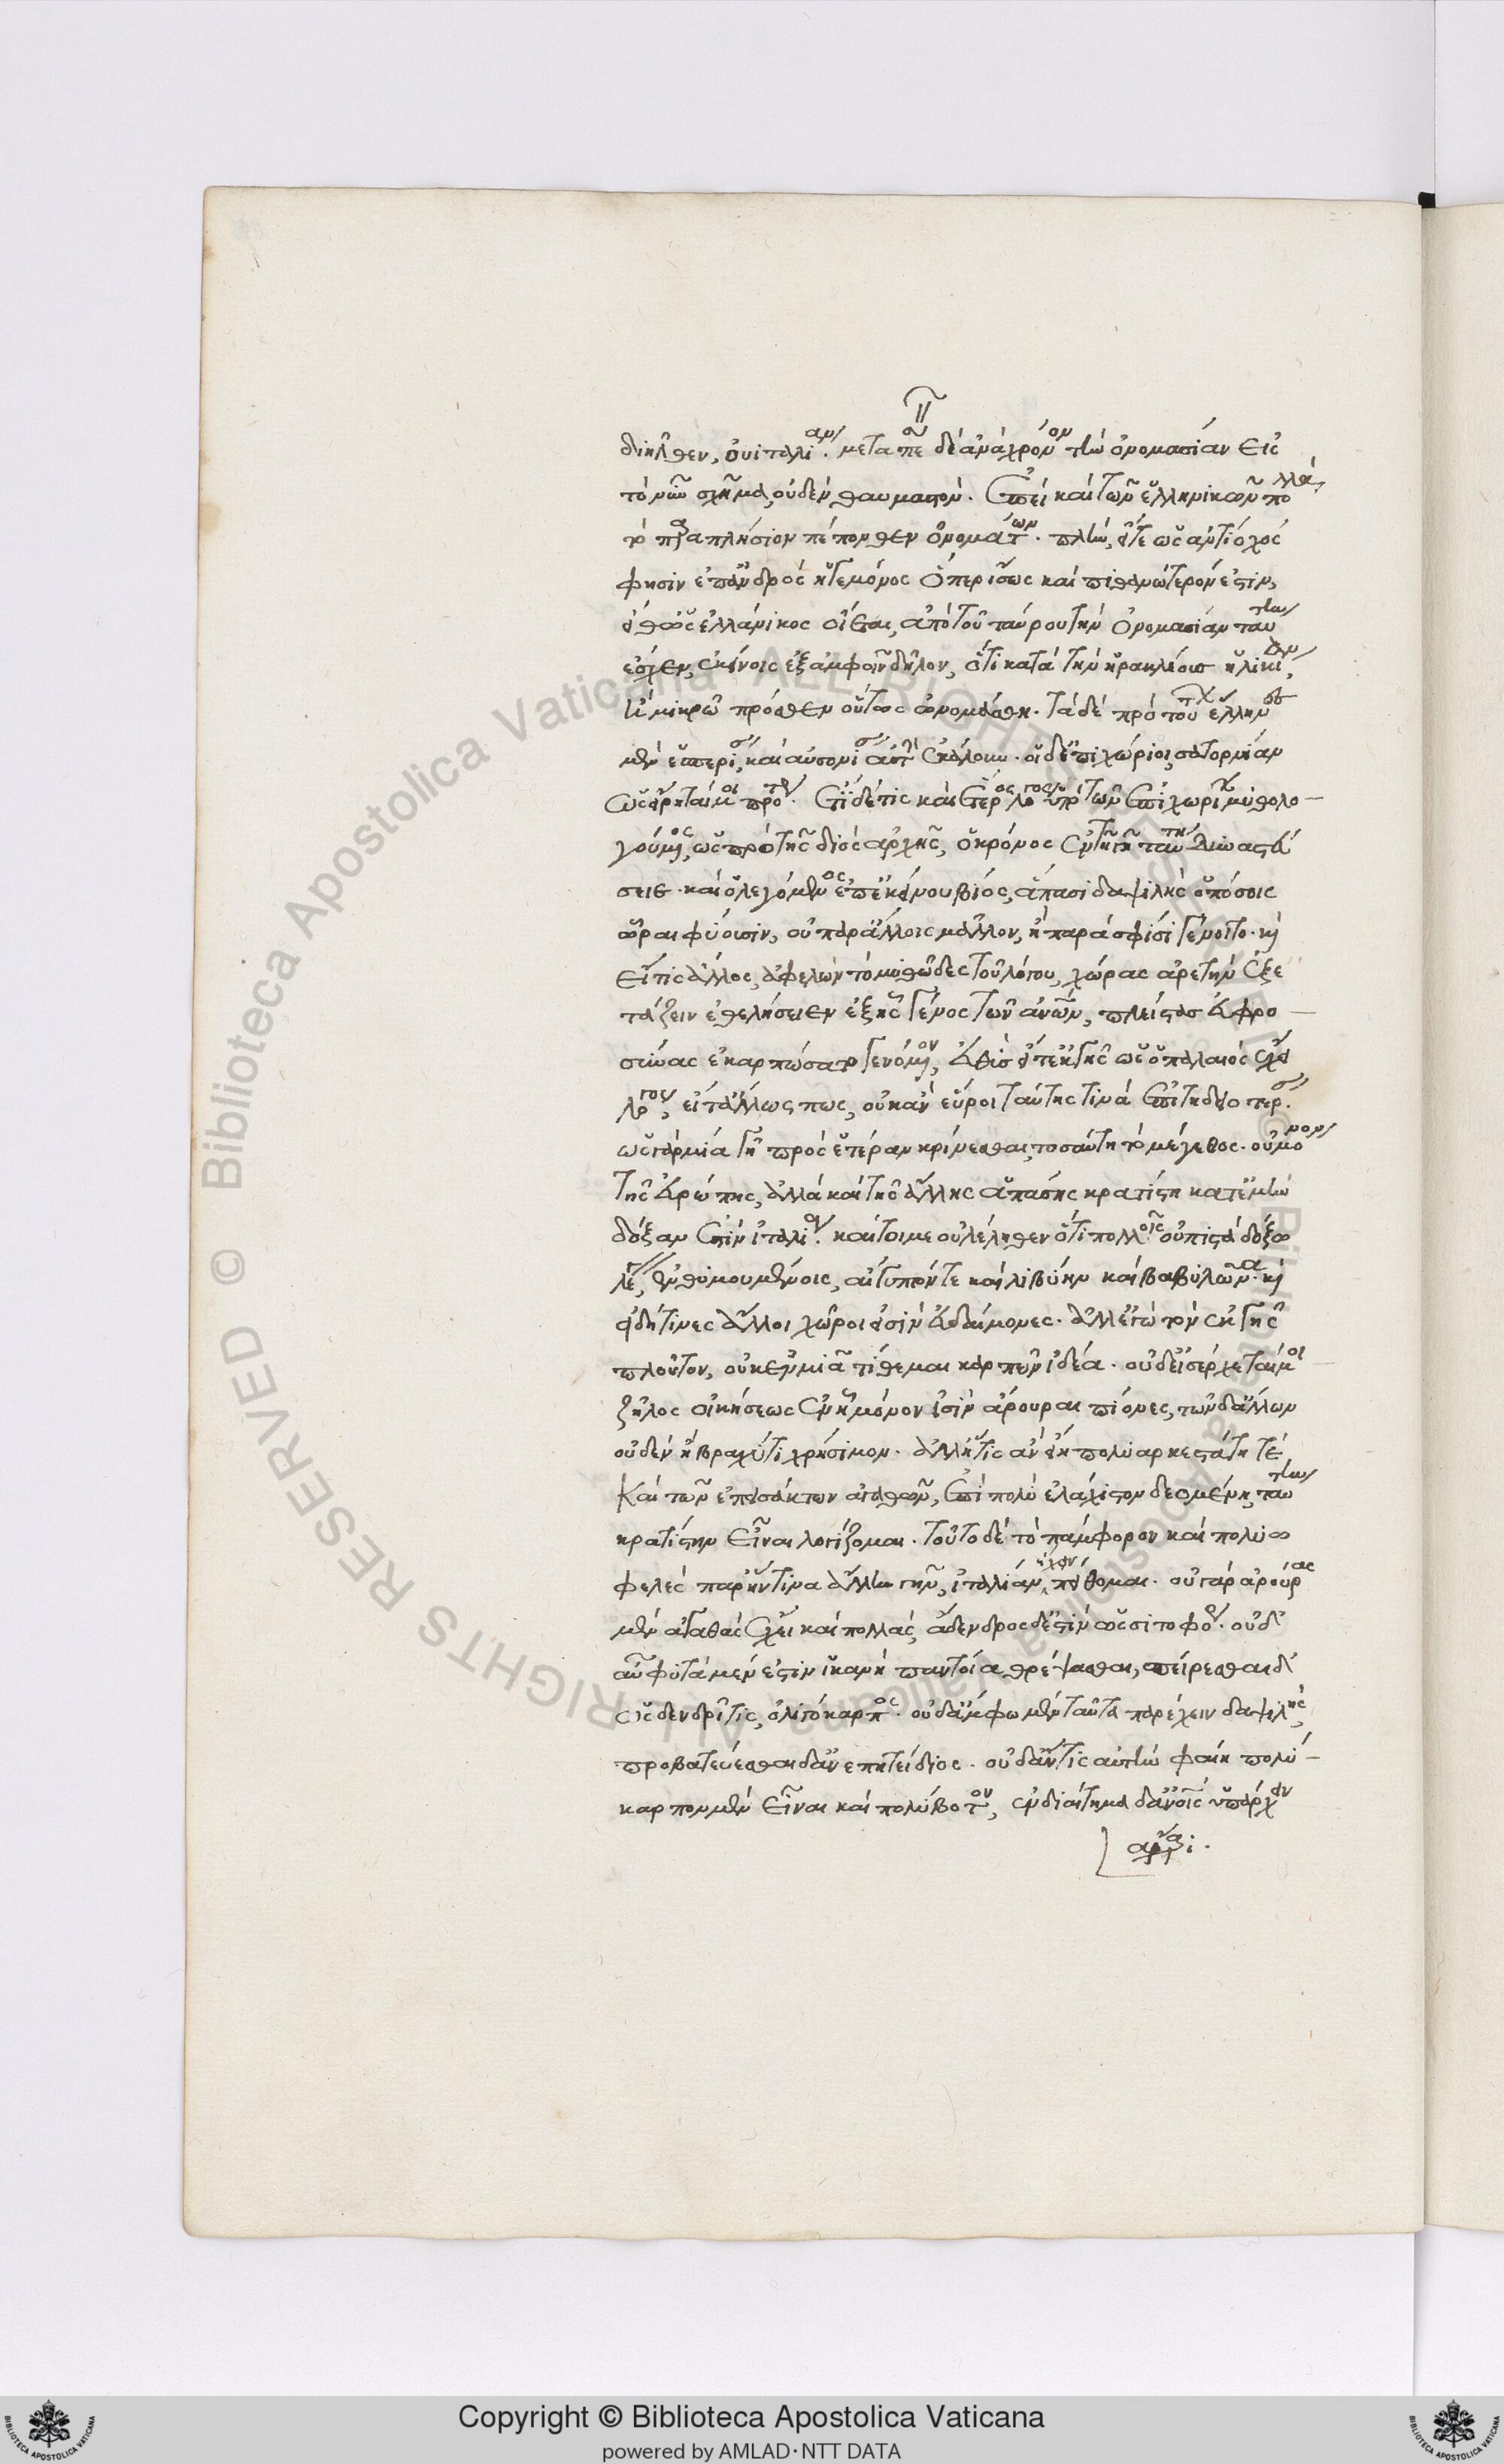 διῆλθεν, οὐιταλίαν. μεταπεσεῖν δὲ ἀνὰ χρόνον τὴν ὀνομασίαν εἰς
τὸ νῦν σχῆμα, οὐδὲν θαυμαστόν. ἐπεὶ καὶ τῶν ἑλληνικῶν πολλὰ
τὸ παραπλήσιον πέπονθεν ὀνομάτων. πλὴν, εἴτε ὡς ἀντίοχός
φησιν ἐπ' ἀνδρὸς ἡγεμόνος ὅπερ ἴσως καὶ πιθανώτερόν ἐστιν,
εἴθ' ὡς ἑλλάνικος οἴεται, ἀπὸ τοῦ ταύρου τὴν ὀνομασίαν ταύτην
ἔσχεν, ἐκεῖνο ἐξ ἀμφοῖν δῆλον, ὅτι κατὰ τὴν ἡρακλέους ἡλικίαν,
ἢ μικρῷ πρόσθεν οὕτως ὠνομάσθη. τὰ δὲ πρὸ τούτων ἕλληνες
μὲν ἑσπερίαν, καὶ αὐσονίαν αὐτὴν ἐκάλουν. οἱ δ' ἐπιχώριοι, σατορνίαν
ὡς εἴρηταί μοι πρότερον. ἔστι δέ τις καὶ ἕτερος λόγος ὑπὸ τῶν ἐπιχωρίων μυθολο-
γούμενος, ὡς πρὸ τῆς διὸς ἀρχῆς, ὁ κρόνος ἐν τῇ γῇ ταύτῃ δυναστεύ
σειε. καὶ ὁ λεγόμενος ἐπ' ἐκείνου βίος, ἅπασι δαψιλὴς ὁπόσοις
ὧραι φύουσιν, οὐ παρ' ἄλλοις μᾶλλον, ἢ παρὰ σφίσι γένοιτο. καὶ
εἴ τις ἄλλος, ἀφελὼν τὸ μυθῶδες τοῦ λόγου, χώρας ἀρετὴν ἐξε
τάζειν ἐθελήσειεν ἐξ ἧς γένος τῶν ἀνθρώπων, πλείστας εὐφρο-
σύνας ἐκαρπώσατο γενόμενον, εὐθὺς εἴτ' ἐκ γῆς ὡς ὁ παλαιὸς ἔχει
λόγος, εἴτ' ἄλλως πως, οὐκ ἂν εὕροι ταύτης τινὰ ἐπιτηδειοτέραν.
ὡς γὰρ μία γῆ πρὸς ἑτέραν κρίνεσθαι, τοσαύτη τὸ μέγεθος. οὐ μόνον
τῆς εὐρώπης, ἀλλὰ καὶ τῆς ἄλλης ἁπάσης κρατίστη κατ' ἐμὴν
δόξαν ἐστὶν ἰταλία. καίτοι με οὐ λέληθεν ὅτι πολλοῖς οὐ πιστὰ δόξω
λέγειν, ἐνθυμουμένοις, αἴγυπτόν τε καὶ λιβύην καὶ βαβυλῶνα. καὶ
εἰ δή τινες ἄλλοι χῶροι εἰσὶν εὐδαίμονες. ἀλλ' ἐγὼ τὸν ἐκ γῆς
πλοῦτον, οὐκ ἐν μιᾷ τίθεμαι καρπῶν ἰδέᾳ. οὐδ' εἰσέρχεταί μοι
ζῆλος οἰκήσεως ἐν ᾗ μόνον εἰσὶν ἄρουραι πίονες, τῶν δ' ἄλλων
οὐδὲν ἢ βραχύ τι χρήσιμον. ἀλλ' ἥτις ἂν εἴη πολυαρκεστάτη τὲ
καὶ τῶν ἐπεισάκτων ἀγαθῶν, ἐπὶ πολὺ ἐλάχιστον δεομένη, ταύτην
κρατίστην εἶναι λογίζομαι. τοῦτο δὲ τὸ παμφόρον καὶ πολυω
φελὲς παρ' ἥντινα ἄλλην γῆν, ἰταλίαν ἔχειν πείθομαι. οὐ γὰρ ἀρούρας
μὲν ἀγαθὰς ἔχει καὶ πολλάς, ἄδενδρος δέ ἐστὶν ὡς σιτοφόρος. οὐδ'
αὖ φυτὰ μέν ἐστιν ἱκανὴ παντοῖα θρέψασθαι, σπείρεσθαι δ'
ὡς δενδρῖτις, ὀλιγόκαρπος. οὐδ' ἄμφω μὲν ταῦτα παρέχειν δαψιλής,
προβατεύεσθαι δ' ἀνεπιτήδειος. οὐδ' ἄν τις αὐτὴν φαίη πολύ-
καρπον μὲν εἶναι καὶ πολύβοτον, ἐνδιαίτημα δ' ἀνοις ὑπάρχειν